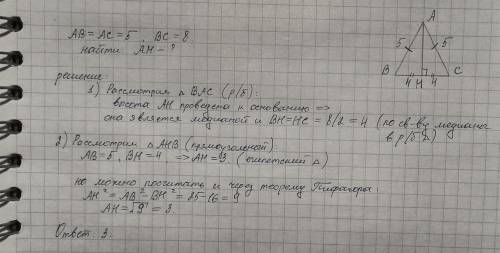 AB = AC = 5, BC = 8
найти AH - ?
решение
1) Рассмотрим △ BAC (р/б):
высота AH проведена к основанию =>
она является медианой и BH=HC = 8/2 = 4 (по св-ву медианы
в р/б △)
2) Рассмотрим △ AHB (прямоугольный)
AB = 5, BH = 4 => AH = 3. (египетский △)
но можно посчитать и через теорему Пифагора:
AH² = AB² - BH² = 25-16 = 9
AH = √9 = 3.
Ответ: 3.
A
5 5
B C
4 H 4